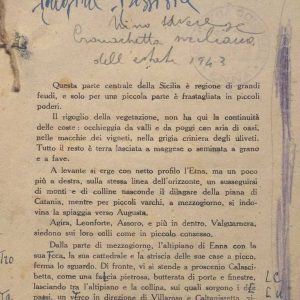 Nino Savarese
Cronachetta siciliana
dell'estate 1943
Questa parte centrale della Sicilia è regione di grandi
feudi, e solo per una piccola parte è frastagliata in piccoli
poderi.
Il rigoglio della vegetazione, non ha qui la continuità
delle coste: occhieggia da valli e da poggi con aria di oasi,
nelle macchie dei vigneti, nella grigia criniera degli uliveti.
Tutto il resto è terra lasciata a maggese o seminata a grano
e a fave.
A levante si erge con netto profilo l'Etna, ma un poco
più a destra, sulla stessa linea dell'orizzonte, un susseguirsi
di monti e di colline nasconde il dilagare della piana di
Catania, mentre per piccoli varchi, a mezzogiorno, si in-
dovina la spiaggia verso Augusta.
Agira, Leonforte, Assoro, e più in dentro, Valguarnera,
siedono sui loro colli come in pacifico consesso.
Dalla parte di mezzogiorno, l'altipiano di Enna con la
sua rocca, la sua cattedrale e la striscia delle sue case a picco,
ferma lo sguardo. Di fronte, vi si stende a provocarlo Calasci-
betta, come una fascia pietrosa, butterata di porte e finestre,
lasciando tra l'altipiano e la collina, sui quali sorgono i due
paesi, un varco in direzione di Villarosa e Caltanissetta,